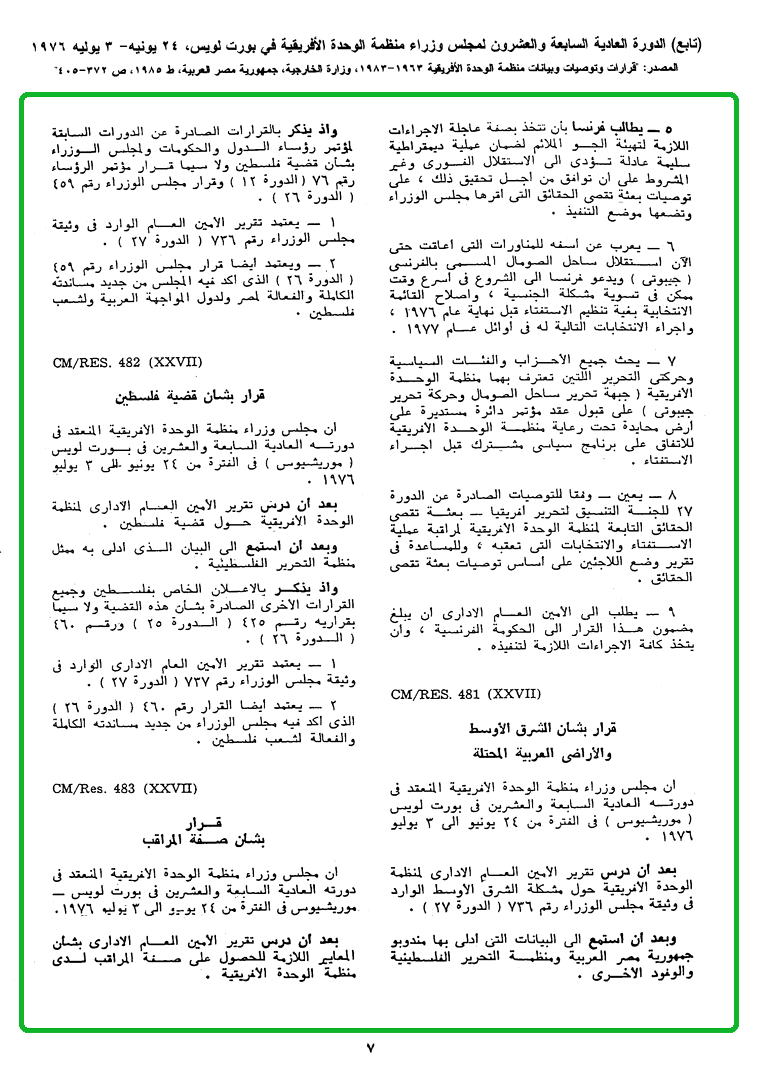 (تابع) الدورة العادية السابعة والعشرون لمجلس وزراء منظمة الوحدة الأفريقية في بورت لويس، ٢٤ يونيه- ٣ يوليه ١٩٧٦
المصدر: "قرارات وتوصيات وبيانات منظمة الوحدة الأفريقية ١٩٦٣-١٩٨٣، وزارة الخارجية، جمهورية مصر العربية، ط ١٩٨٥، ص ٣٧٢-٤٠٥"
٥ — يطالب فرنسا بأن تتخذ بصفة عاجلة الاجراءات
اللازمة لتهيئة الجو الملائم لضمان عملية ديمقراطية
سليمة عادلة تؤدى الى الاستقلال الفورى وغير
المشروط على ان توافق من أجل تحقيق ذلك ، على
توصيات بعثة تقصى الحقائق التى اقرها مجلس الوزراء
وتضعها موضع التنفيذ .
٦ — يعرب عن أسفه للمناورات التى اعاقت حتى
الآن استقلال ساحل الصومال المسمى بالفرنسى
( جيبوتى ) ويدعو فرنسا الى الشروع فى أسرع وقت
ممكن فى تسوية مشكلة الجنسية ، واصلاح القائمة
الانتخابية بغية تنظيم الاستفتاء قبل نهاية عام ١٩٧٦ ،
واجراء الانتخابات التالية له فى أوائل عام ١٩٧٧ .
٧ — يحث جميع الأحزاب والفئات السياسية
وحركتى التحرير اللتين تعترف بهما منظمة الوحدة
الأفريقية ( جبهة تحرير ساحل الصومال وحركة تحرير
جيبوتى ) على قبول عقد مؤتمر دائرة مستديرة على
أرض محايدة تحت رعاية منظمة الوحدة الأفريقية
للاتفاق على برنامج سياسى مشترك قبل اجراء
الاستفتاء .
٨ — يعين — وفقا للتوصيات الصادرة عن الدورة
٢٧ للجنة التنسيق لتحرير افريقيا — بعثة تقصى
الحقائق التابعة لمنظمة الوحدة الأفريقية لمراقبة عملية
الاستفتاء والانتخابات التى تعقبه ، وللمساعدة فى
تقرير وضع اللاجئين على اساس توصيات بعثة تقصى
الحقائق .
٩ — يطلب الى الأمين العام الادارى ان يبلغ
مضمون هذا القرار الى الحكومة الفرنسية ، وأن
يتخذ كافة الاجراءات اللازمة لتنفيذه .
CM/RES. 481 (XXVII)
قرار بشان الشرق الأوسط
والأراضى العربية المحتلة
ان مجلس وزراء منظمة الوحدة الأفريقية المنعقد فى
دورته العادية السابعة والعشرين فى بورت لويس
( موريشيوس ) فى الفترة من ٢٤ يونيو الى ٣ يوليو
١٩٧٦ .
بعد أن درس تقرير الأمين العام الادارى لمنظمة
الوحدة الأفريقية حول مشكلة الشرق الأوسط الوارد
فى وثيقة مجلس الوزراء رقم ٧٣٦ ( الدورة ٢٧ ) .
وبعد أن استمع الى البيانات التى أدلى بها مندوبو
جمهورية مصر العربية ومنظمة التحرير الفلسطينية
والوفود الأخرى .
واذ يذكر بالقرارات الصادرة عن الدورات السابقة
لمؤتمر رؤساء الدول والحكومات ولمجلس الوزراء
بشأن قضية فلسطين ولا سيما قرار مؤتمر الرؤساء
رقم ٧٦ ( الدورة ١٢ ) وقرار مجلس الوزراء رقم ٤٥٩
( الدورة ٢٦ ) .
١ — يعتمد تقرير الأمين العام الوارد فى وثيقة
مجلس الوزراء رقم ٧٣٦ ( الدورة ٢٧ ) .
٢ — ويعتمد أيضا قرار مجلس الوزراء رقم ٤٥٩
( الدورة ٢٦ ) الذى اكد فيه المجلس من جديد مساندته
الكاملة والفعالة لمصر ولدول المواجهة العربية ولشعب
فلسطين .
CM/RES. 482 (XXVII)
قرار بشان قضية فلسطين
ان مجلس وزراء منظمة الوحدة الأفريقية المنعقد فى
دورته العادية السابعة والعشرين فى بورت لويس
( موريشيوس ) فى الفترة من ٢٤ يونيو الى ٣ يوليو
١٩٧٦ .
بعد أن درس تقرير الأمين العام الادارى لمنظمة
الوحدة الأفريقية حول قضية فلسطين .
وبعد أن استمع الى البيان الذى ادلى به ممثل
منظمة التحرير الفلسطينية .
واذ يذكر بالاعلان الخاص بفلسطين وجميع
القرارات الأخرى الصادرة بشان هذه القضية ولا سيما
بقراريه رقم ٤٢٥ ( الدورة ٢٥ ) ورقم ٤٦٠
( الدورة ٢٦ ) .
١ — يعتمد تقرير الأمين العام الادارى الوارد فى
وثيقة مجلس الوزراء رقم ٧٣٧ ( الدورة ٢٧ ) .
٢ — يعتمد أيضا القرار رقم ٤٦٠ ( الدورة ٢٦ )
الذى اكد فيه مجلس الوزراء من جديد مساندته الكاملة
والفعالة لشعب فلسطين .
CM/Res. 483 (XXVII)
قرار
بشان صفة المراقب
ان مجلس وزراء منظمة الوحدة الأفريقية المنعقد فى
دورته العادية السابعة والعشرين فى بورت لويس —
موريشيوس فى الفترة من ٢٤ يونيو الى ٣ يوليو ١٩٧٦.
بعد أن درس تقرير الأمين العام الادارى بشان
المعايير اللازمة للحصول على صفة المراقب لدى
منظمة الوحدة الأفريقية .
٧